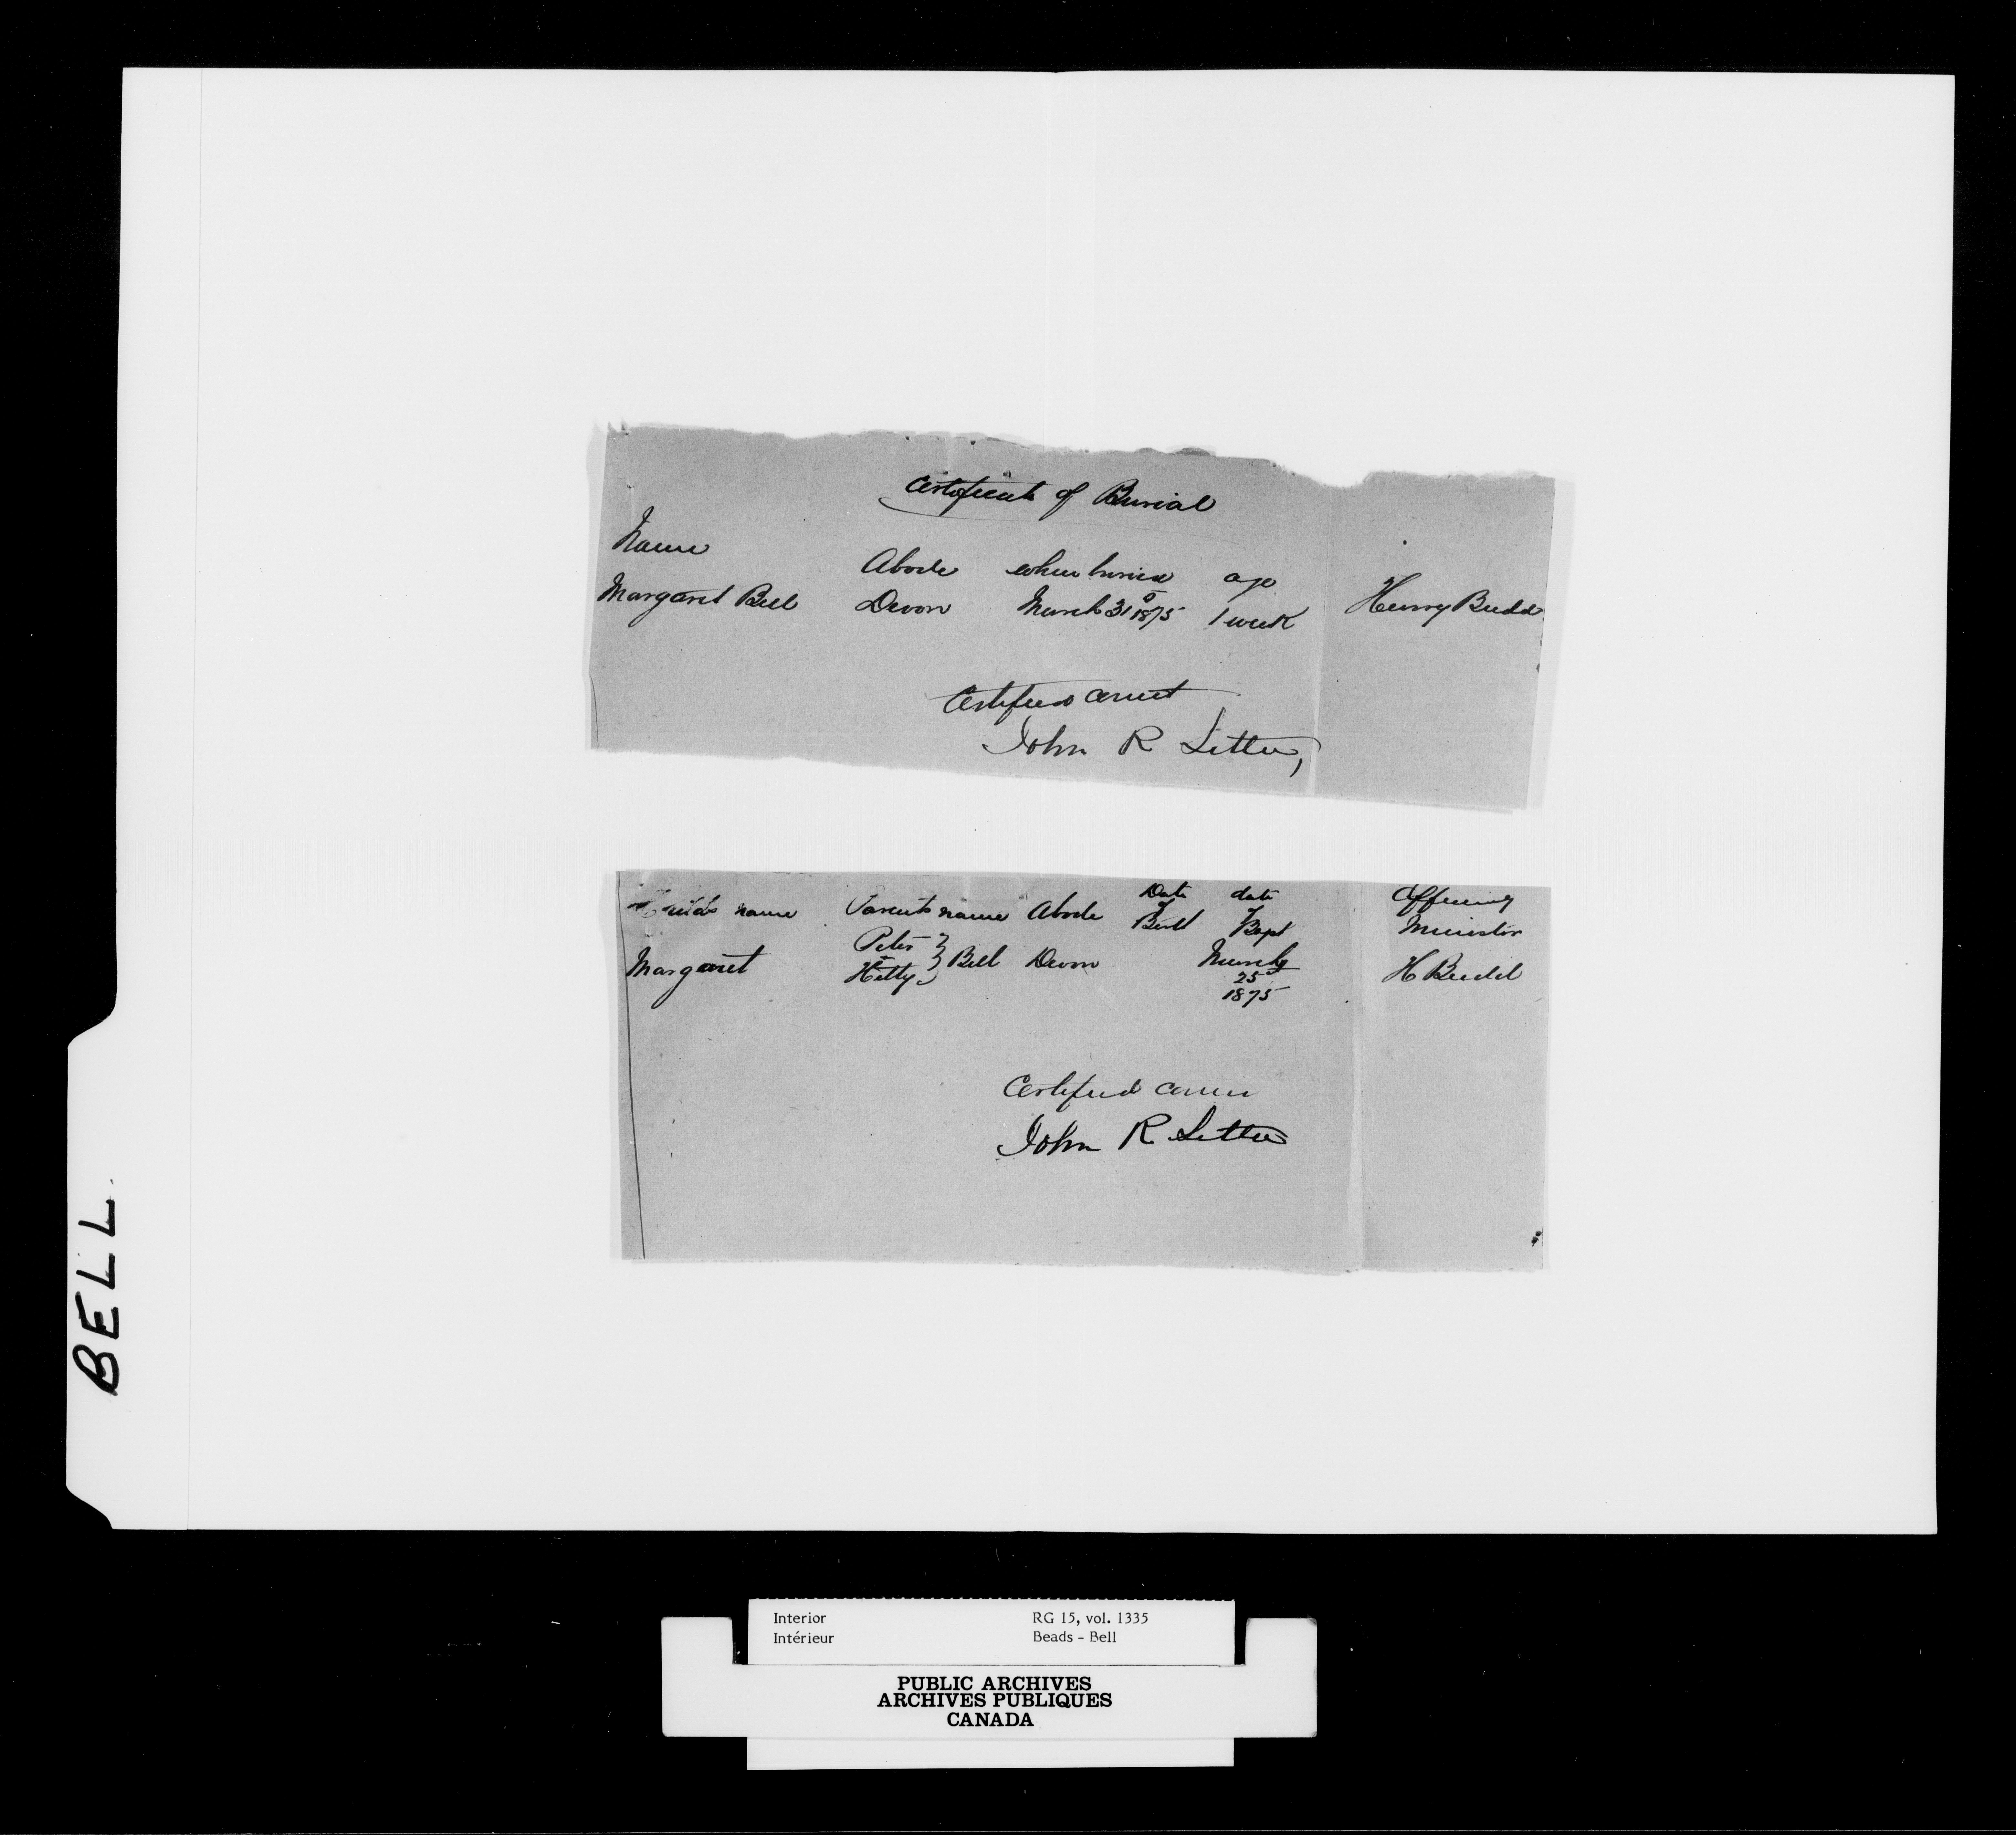 Certificate of Burial
Name Abode when buried age
Margaret Bell Devon March 31 1875 1 week Henry Budd
Certified correct
John R Settee
Child's name Parents name Abode Date of Birth date of Bapt Officiating Minister
Margaret Peter & Hetty } Bell Devon March 25 1875 H Budd
Certified correct
John R Settee
BELL.
Interior RG 15, vol. 1335
Intérieur Beads - Bell
PUBLIC ARCHIVES
ARCHIVES PUBLIQUES
CANADA